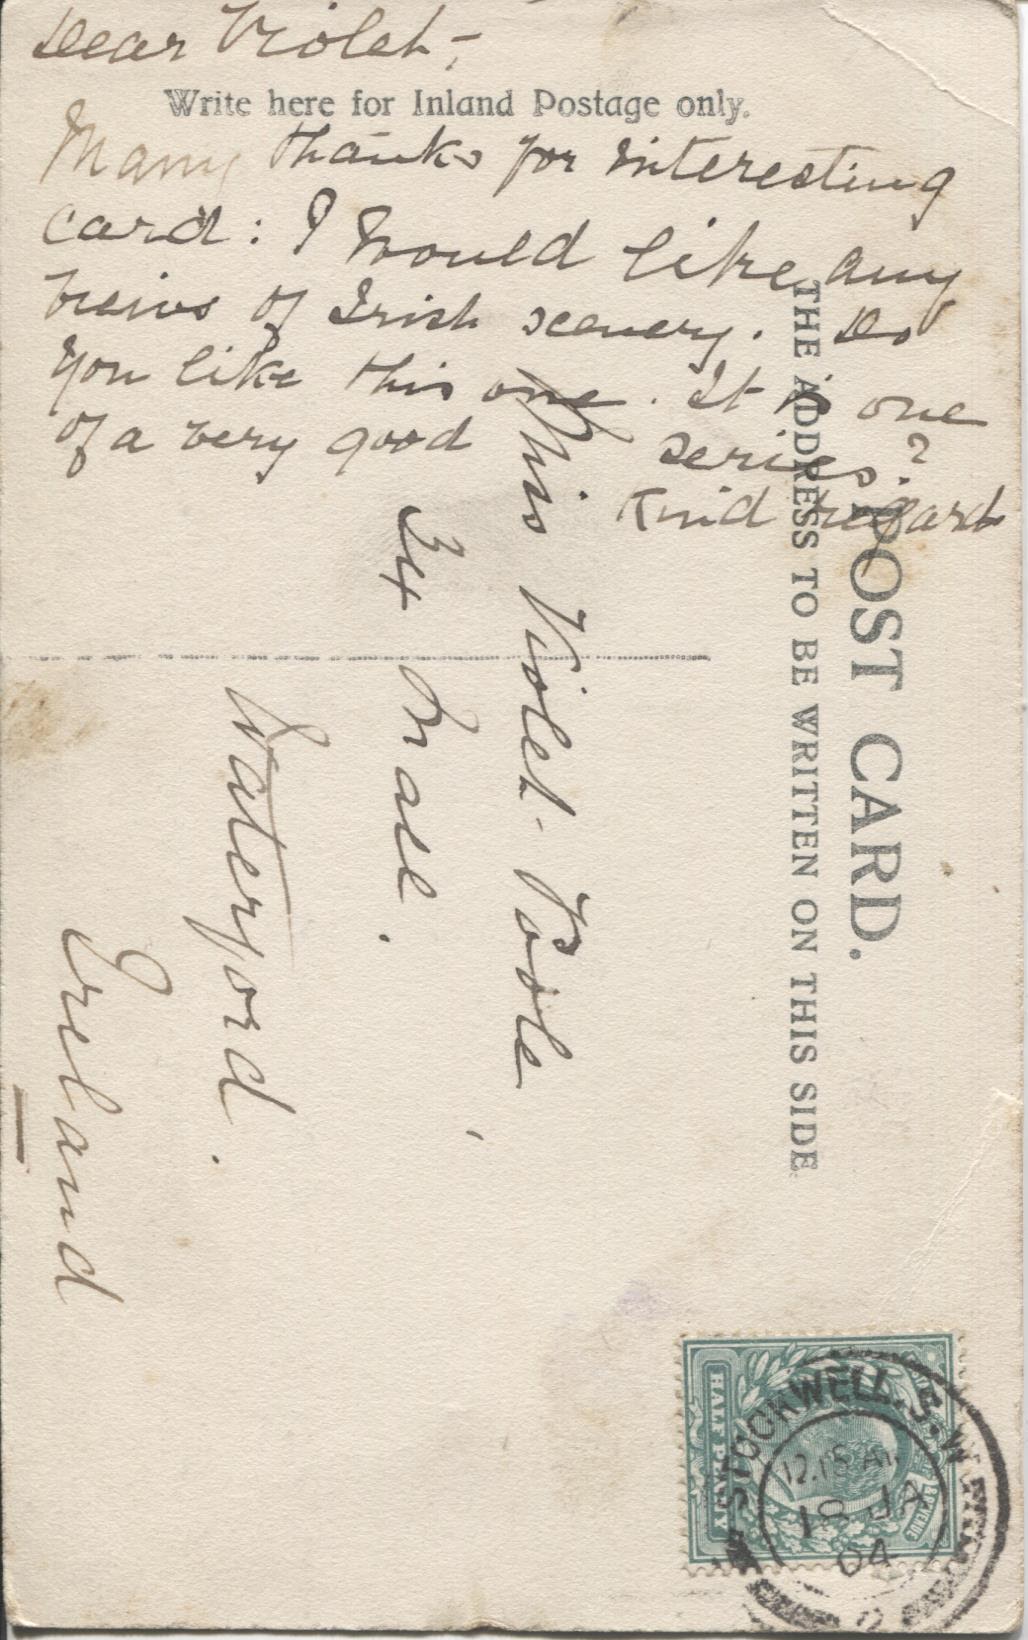 Dear Violet,
Write here for Inland Postage only.
Many thanks for interesting
card: I would like any
views of Irish scenery. Do
you like this one. It is one
of a very good series?
Kind regards
POST CARD.
THE ADDRESS TO BE WRITTEN ON THIS SIDE
Miss Violet Poole
34 Mall.
Waterford.
Ireland
HALF PENNY
REVENUE
STOCKWELL. S.W
12.15 AM
18 JA
04